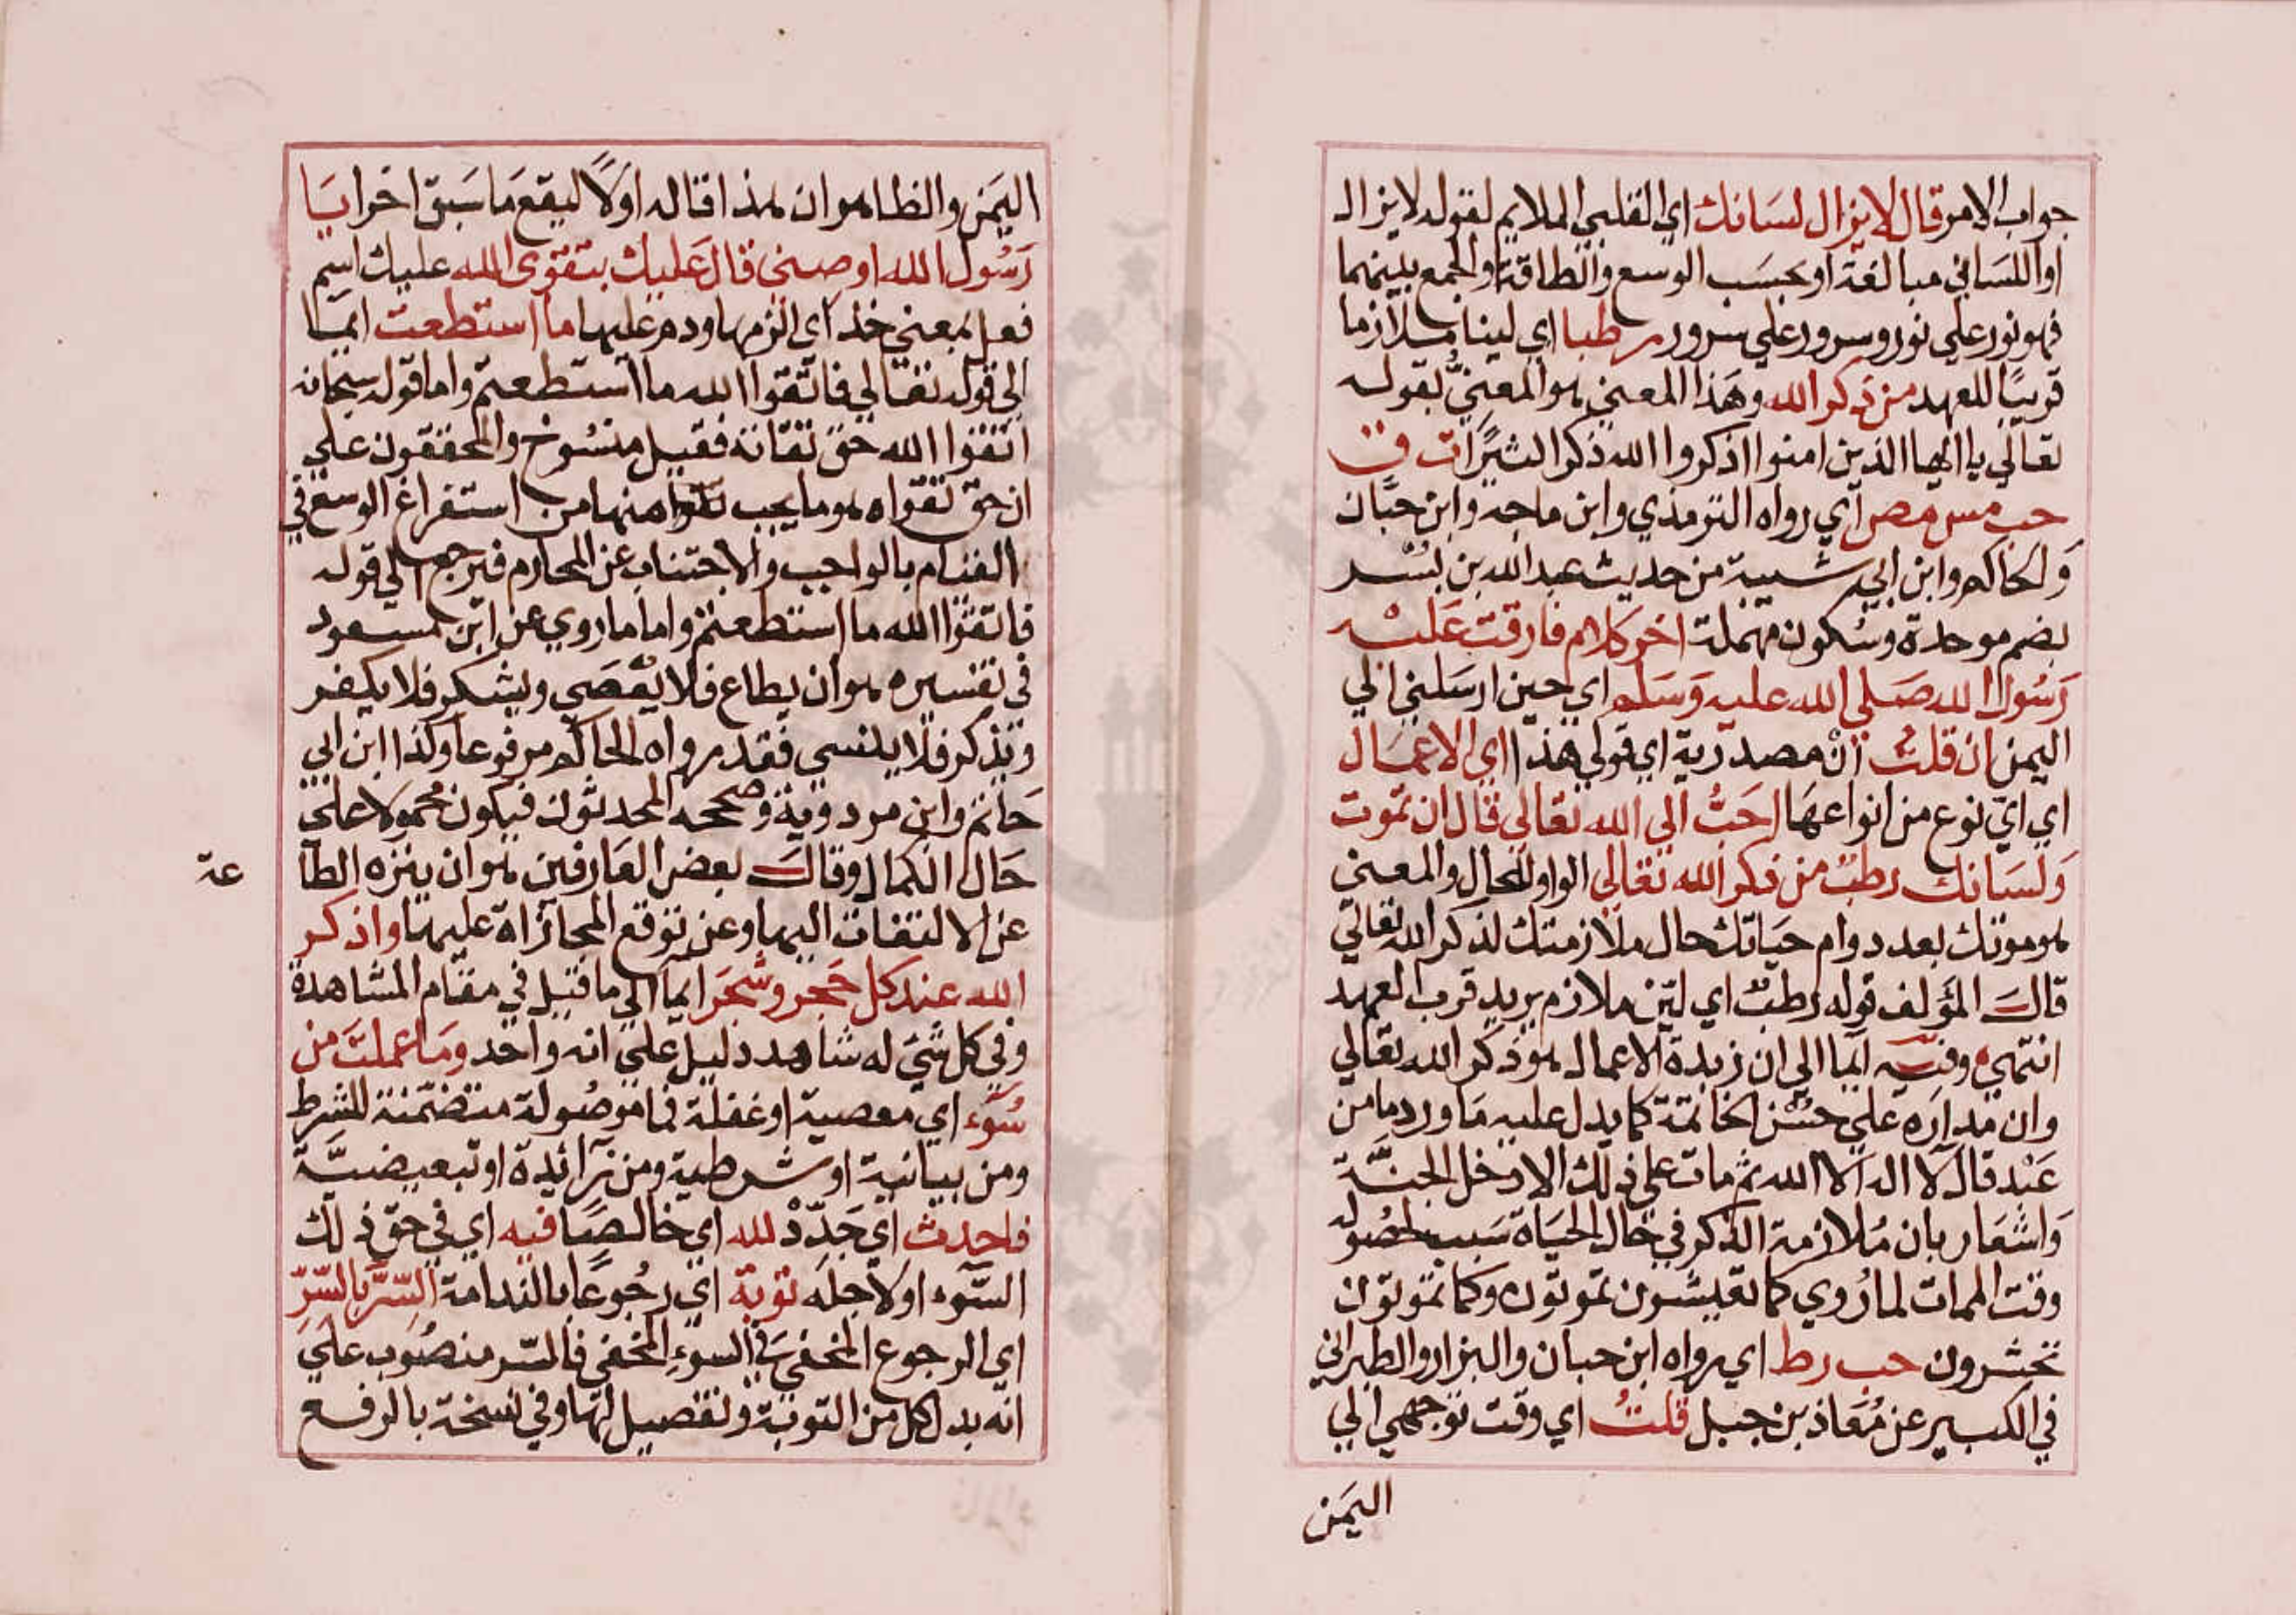 جواب الامر قال لا يزال لسانك اي القلبي الملايم لقوله لا يزال
او اللساني مبالغة او بحسب الوسع والطاقة والجمع بينهما
فهو نور علي نور وسرور علي سرور رطبا اي لينا ملازما
قريبًا للعهد من ذكر الله وهَذا المعني هو المعنيُّ بقوله
تعالي يا ايها الذين امنوا اذكروا الله ذكرا كثيرًا ت ق
حب مس مص اي رواه الترمذي وابن ماجه وابن حبان
وَالحاكم وابن ابي شيبة من حديث عبد الله بن بُسْر
بضم موحدة وسُكون مهملة اخر كلام فارقت عَليْه
رَسُول الله صَلي الله عليه وَسَلم اي حين ارسَلني الي
اليمن ان قلتُ أنْ مصدرية اي قولي هذا اي الاعمَال
اي اي نوع من انواعهَا احَبُّ الي الله تعَالي قال ان تموت
وَلسَانك رطبٌ من ذكر الله تعَالي الواو للحال والمعني
هو موتك بعد دوام حيَاتك حال ملازمتك لذكر الله تعَالي
قالَ المؤلف قوله رطبٌ اي ليّن ملازم يريد قرب العهد
انتهي وفيه ايما الي ان زبدة الاعمال هو ذكر الله تعَالي
وان مدارَه علي حُسْن الخاتمة كما يدل عليه مَا ورد ما من
عَبْد قال لا اله الا الله ثم مات علي ذلك الا دخل الجنَّة
وَاشعَار بان مُلازمة الذكر في حَال الحيَاة سَبب لحصُوله
وقت الممات لما رُوي كما تعيشون تموتون وكما تموتون
تحشرون حب ر ط اي رواه ابن حبان والبزار والطبراني
في الكبير عن مُعَاذ بن جبل قلتُ اي وقت توجهي الي
اليمَن
اليَمَن والظاهر ان هذا قاله اوَلًا ليقعَ مَا سَبق اخرا يَا
رَسُول الله اوصني قالَ عَليك بتقوى الله عليك اسم
فعل بمعني خذ اي الزمها ودم عليها ما استطعت ايما
الي قوله تعَالي فاتّقوا الله ما استطعتم واما قوله سبحانه
اتقوا الله حَق تقاته فقيل منسُوخ والمحققون علي
ان حق تقواه هو ما يجب منها من استفراغ الوسع في
القيام بالواجب والاجتناب عن المحارم فيرجع الي قوله
فاتقوا الله ما استطعتم واما ما روي عن ابن مسعود
في تفسيره هو ان يطاع فلا يُعْصَي ويشكر فلا يكفر
ويذكر فلا ينسي فقد رواه الحاكم مرفوعا وكذا ابن ابي
حَاتم وابن مردوية وصححه المحدثون فيكون محمولا علي
حَال الكمال وقالَ بعض العَارفين هو ان ينزه الطا
عة
عن الالتفات اليها وعن توقع المجازاة عليها واذكر
الله عند كل حَجر وشجَر ايما الي ما قيل في مقام المشاهدة
وفي كل شَيْء له شاهد دليل علي انه واحد ومَا عملتَ من
سُوْء اي معصية او غفلة فما موصُولة متضمنة للشرط
ومن بيانية او شرطية ومن زائدة او تبعيضيَّة
فاحدث اي جَدِّدْ لله اي خالصًا فيه اي في حَقّ ذلك
السَّوء او لاجله توبة اي رجُوعًا بالندامة السِّرّ بالسّرّ
اي الرجوع المخفي في السوء المخفي فالسّر منصُوب عليَ
انّه بدل كل من التوبة وتفصيل لهَا وفي نسخة بالرفع